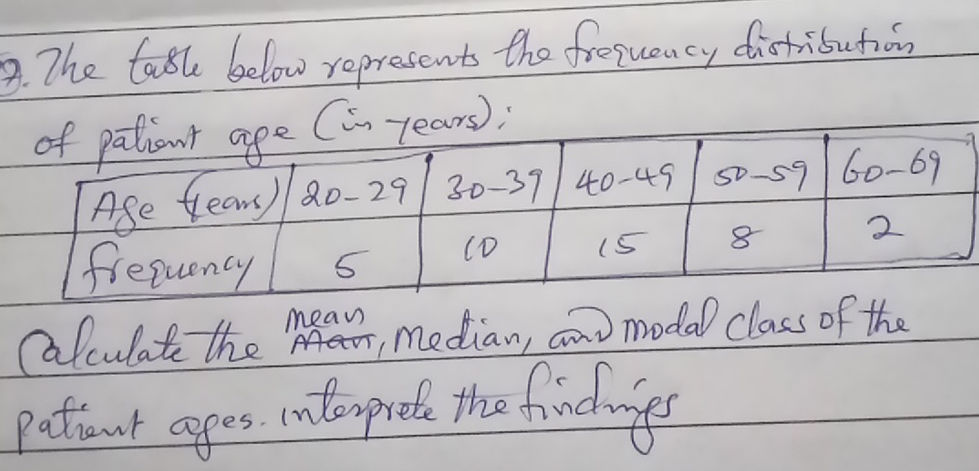 2. The table below represents the frequency distribution
of patient age (in years):
Age (years) 20-29 30-39 40-49 50-59 60-69
frequency 5 10 15 8 2
Calculate the mean, median, and modal class of the
patient ages. interprete the findings